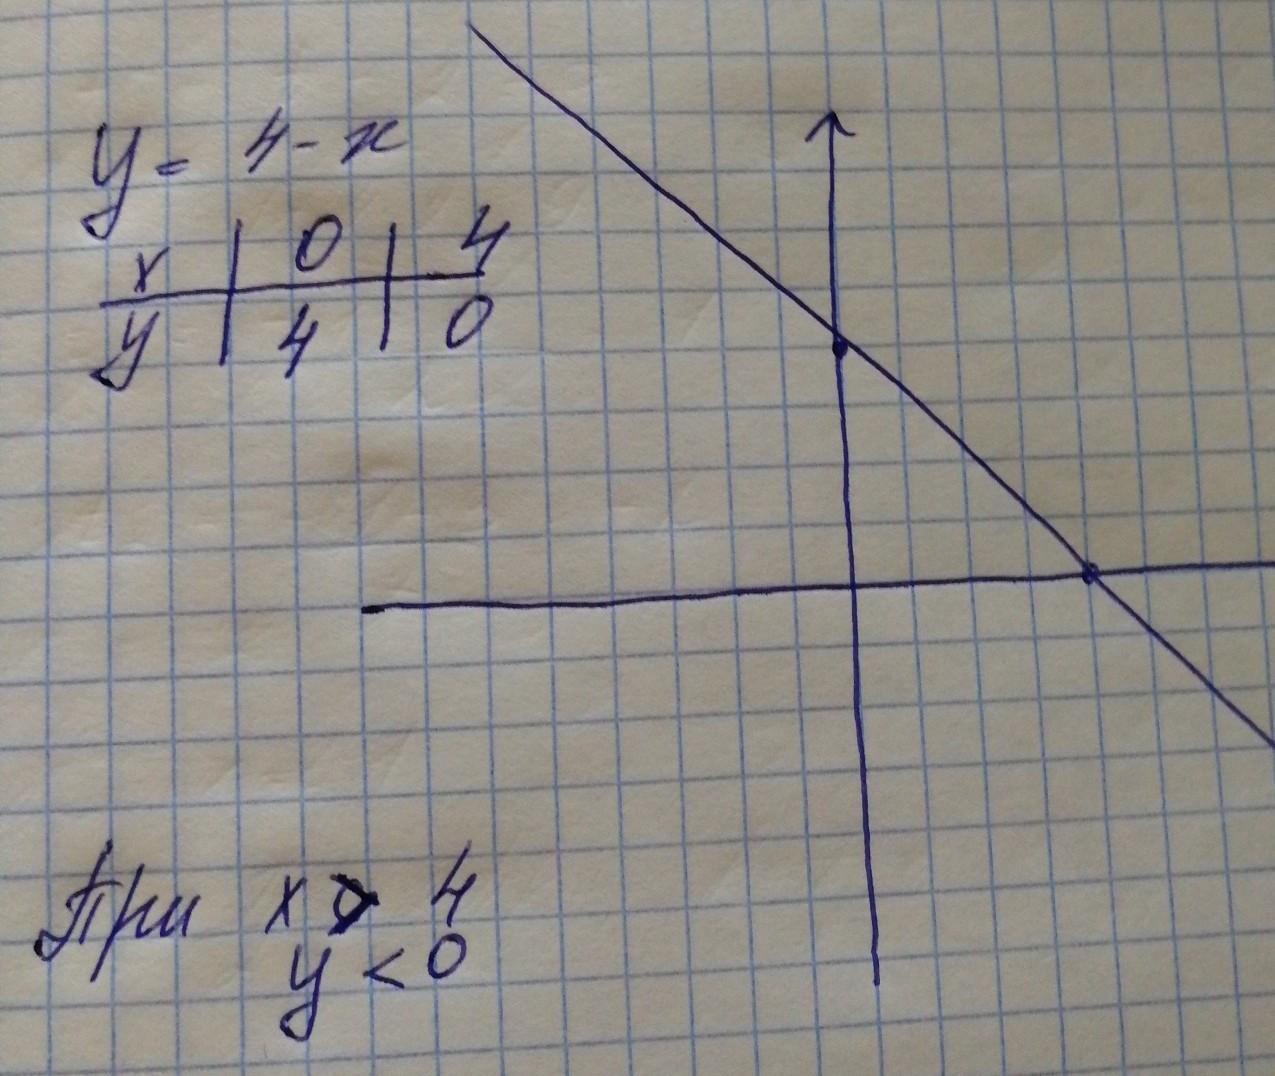 y = 4 - x
x | 0 | 4
y | 4 | 0
При x > 4
y < 0